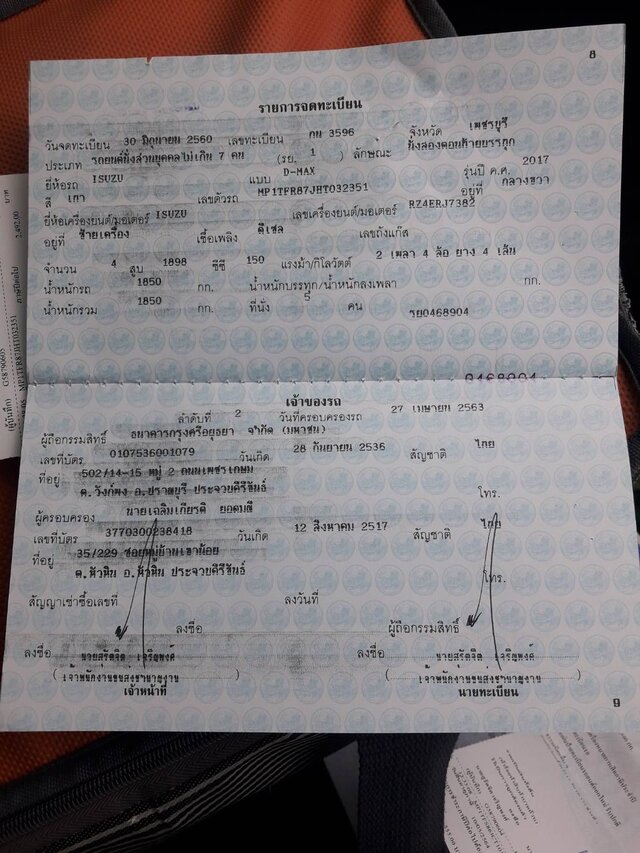 8
รายการจดทะเบียน
วันจดทะเบียน 30 มิถุนายน 2560 เลขทะเบียน กน 3596 จังหวัด เพชรบุรี
ประเภท รถยนต์นั่งส่วนบุคคลไม่เกิน 7 คน (รย. 1 ) ลักษณะ นั่งสองตอนท้ายบรรทุก
ยี่ห้อรถ ISUZU แบบ D-MAX รุ่นปี ค.ศ. 2017
สี เทา เลขตัวรถ MP1TFR87JHT032351 อยู่ที่ กลางขวา
ยี่ห้อเครื่องยนต์/มอเตอร์ ISUZU เลขเครื่องยนต์/มอเตอร์ RZ4ERJ7382
อยู่ที่ ซ้ายเครื่อง เชื้อเพลิง ดีเซล เลขถังแก๊ส
จำนวน 4 สูบ 1898 ซีซี 150 แรงม้า/กิโลวัตต์ 2 เพลา 4 ล้อ ยาง 4 เส้น
น้ำหนักรถ 1850 กก. น้ำหนักบรรทุก/น้ำหนักลงเพลา กก.
น้ำหนักรวม 1850 กก. ที่นั่ง 5 คน รย0468904
0468904
เจ้าของรถ
ลำดับที่ 2 วันที่ครอบครองรถ 27 เมษายน 2563
ผู้ถือกรรมสิทธิ์ ธนาคารกรุงศรีอยุธยา จำกัด (มหาชน)
เลขที่บัตร 0107536001079 วันเกิด 28 กันยายน 2536 สัญชาติ ไทย
ที่อยู่ 502/14-15 หมู่ 2 ถนนเพชรเกษม
ต.วังก์พง อ.ปราณบุรี ประจวบคีรีขันธ์ โทร.
ผู้ครอบครอง นายเฉลิมเกียรติ ยอดมณี
เลขที่บัตร 3770300238418 วันเกิด 12 สิงหาคม 2517 สัญชาติ ไทย
ที่อยู่ 35/229 ซอยหมู่บ้านเขาน้อย
ต.หัวหิน อ.หัวหิน ประจวบคีรีขันธ์ โทร.
สัญญาเช่าซื้อเลขที่ ลงวันที่
ลงชื่อ ผู้ถือกรรมสิทธิ์
ลงชื่อ นายสุรัตจิต เจริญพงศ์ ลงชื่อ นายสุรัตจิต เจริญพงศ์
(เจ้าพนักงานขนส่งชำนาญงาน) (เจ้าพนักงานขนส่งชำนาญงาน)
เจ้าหน้าที่ นายทะเบียน
9